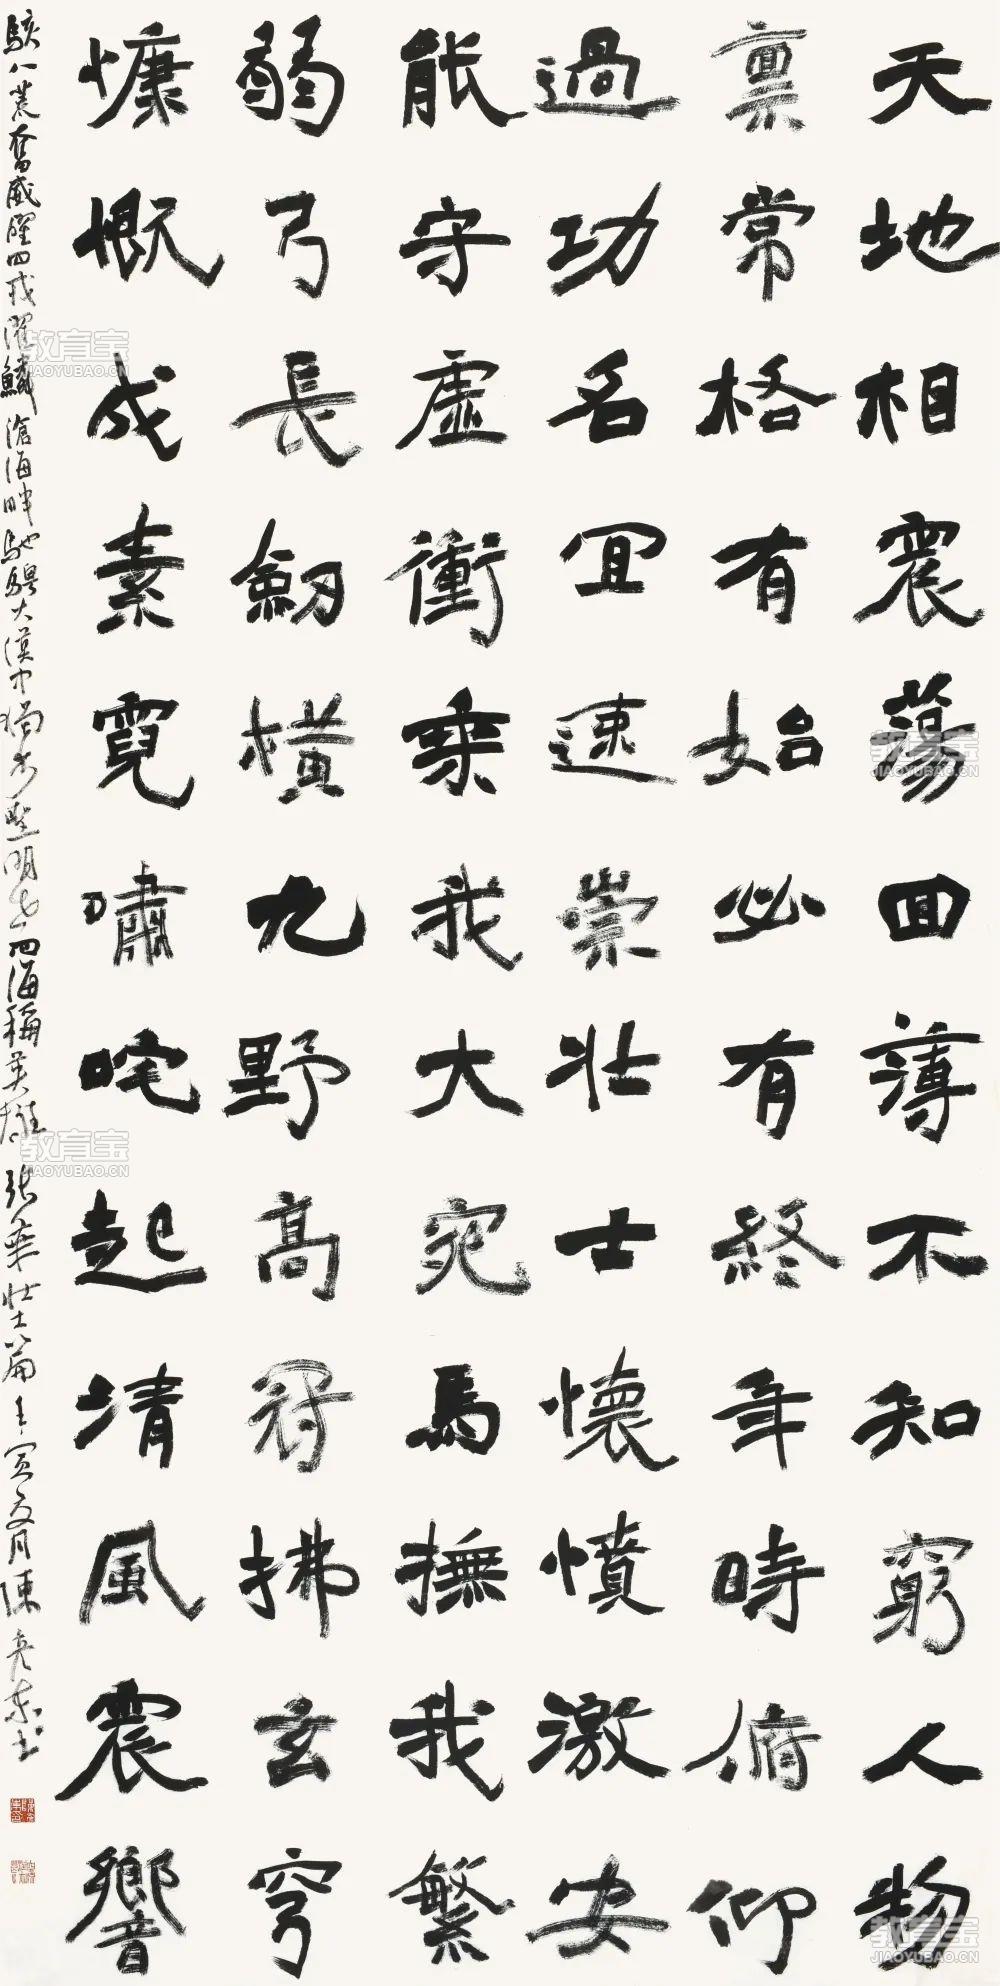 天地相震蕩回薄不知窮人物
禀常格有始必有終年時俯仰
過功名宜速崇壯士懷憤激安
能守虛衝乘我大宛馬撫我繁
弱弓長劍橫九野高冠拂玄穹
慷慨成素霓嘯咤起清風震響
駭八荒奮威曜四戎濯鱗滄海畔馳騁大漠中獨步聖明世四海稱英雄 張華壯士篇壬寅夏月陳
教育宝
JIAOYUBAO.CN
教育宝
JIAOYUBAO.CN
教育宝
JIAOYUBAO.CN
教育宝
JIAOYUBAO.CN